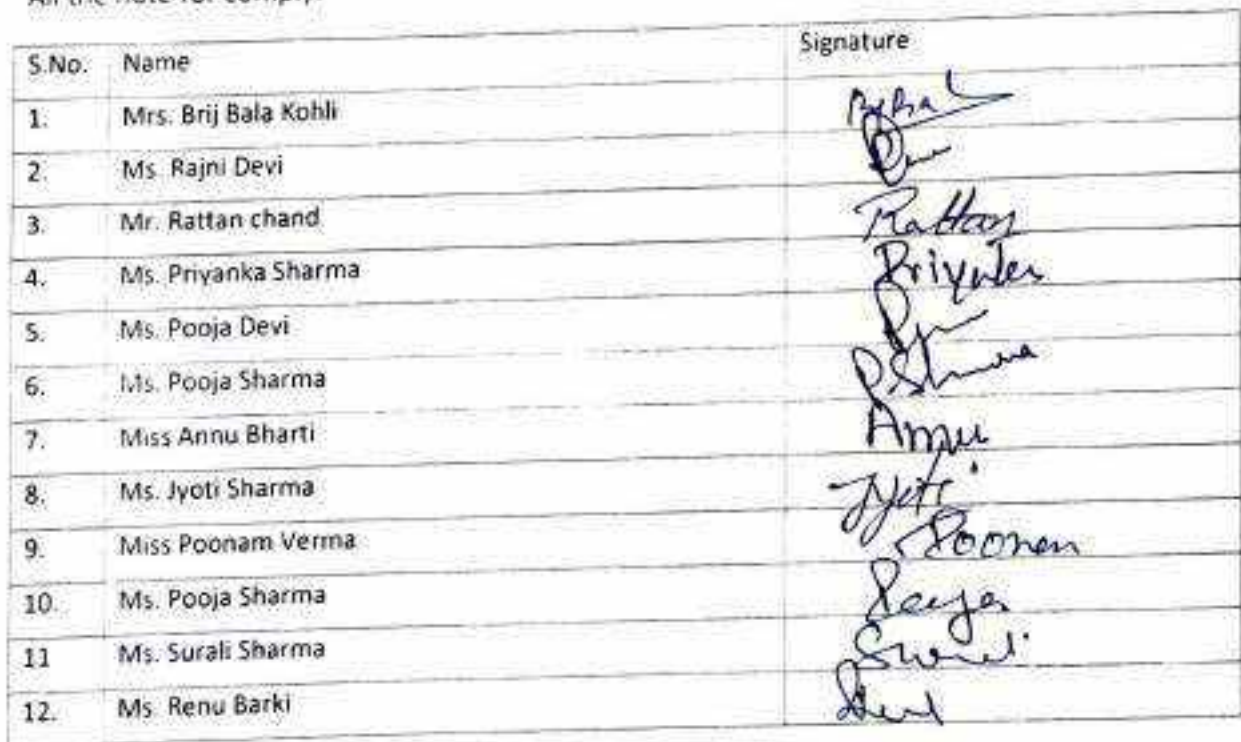 All the note for
S.No. Name Signature
1. Mrs. Brij Bala Kohli
2. Ms. Rajni Devi
3. Mr. Rattan chand Rattan
4. Ms. Priyanka Sharma
5. Ms. Pooja Devi
6. Ms. Pooja Sharma P.Sharma
7. Miss Annu Bharti Annu
8. Ms. Jyoti Sharma Jyoti
9. Miss Poonam Verma Poonam
10. Ms. Pooja Sharma
11 Ms. Surali Sharma
12. Ms. Renu Barki